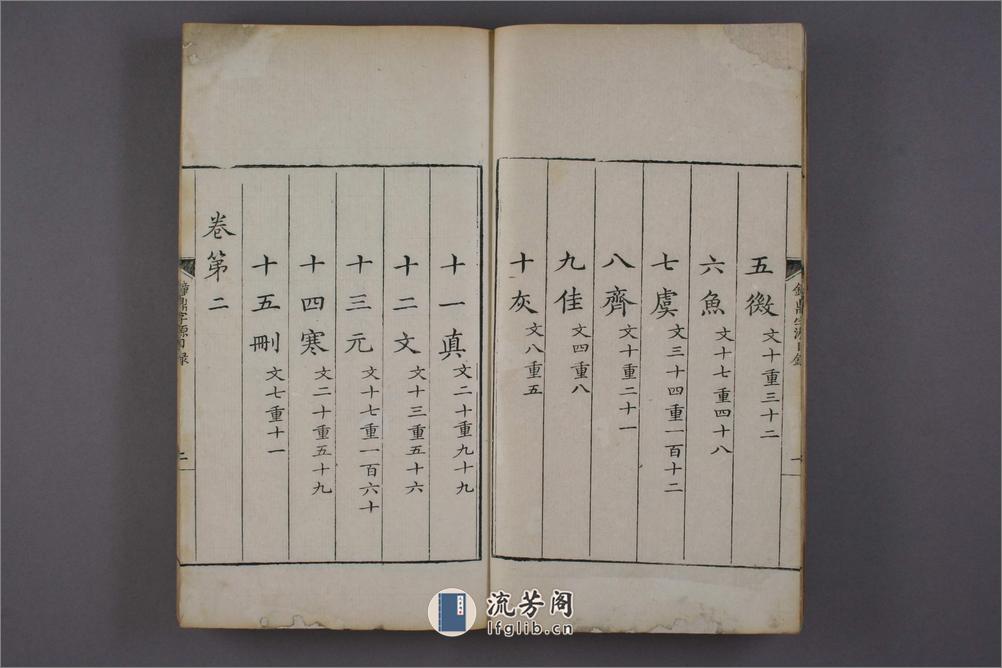 五微 文十重三十二
六魚 文十七重四十八
七虞 文三十四重一百十二
八齊 文十重二十一
九佳 文四重八
十灰 文八重五
十一真 文二十重九十九
十二文 文十三重五十六
十三元 文十七重一百六十
十四寒 文二十重五十九
十五刪 文七重十一
卷第二
鐘鼎字源目錄
一
鐘鼎字源目錄
二
流芳阁
lfglib.cn